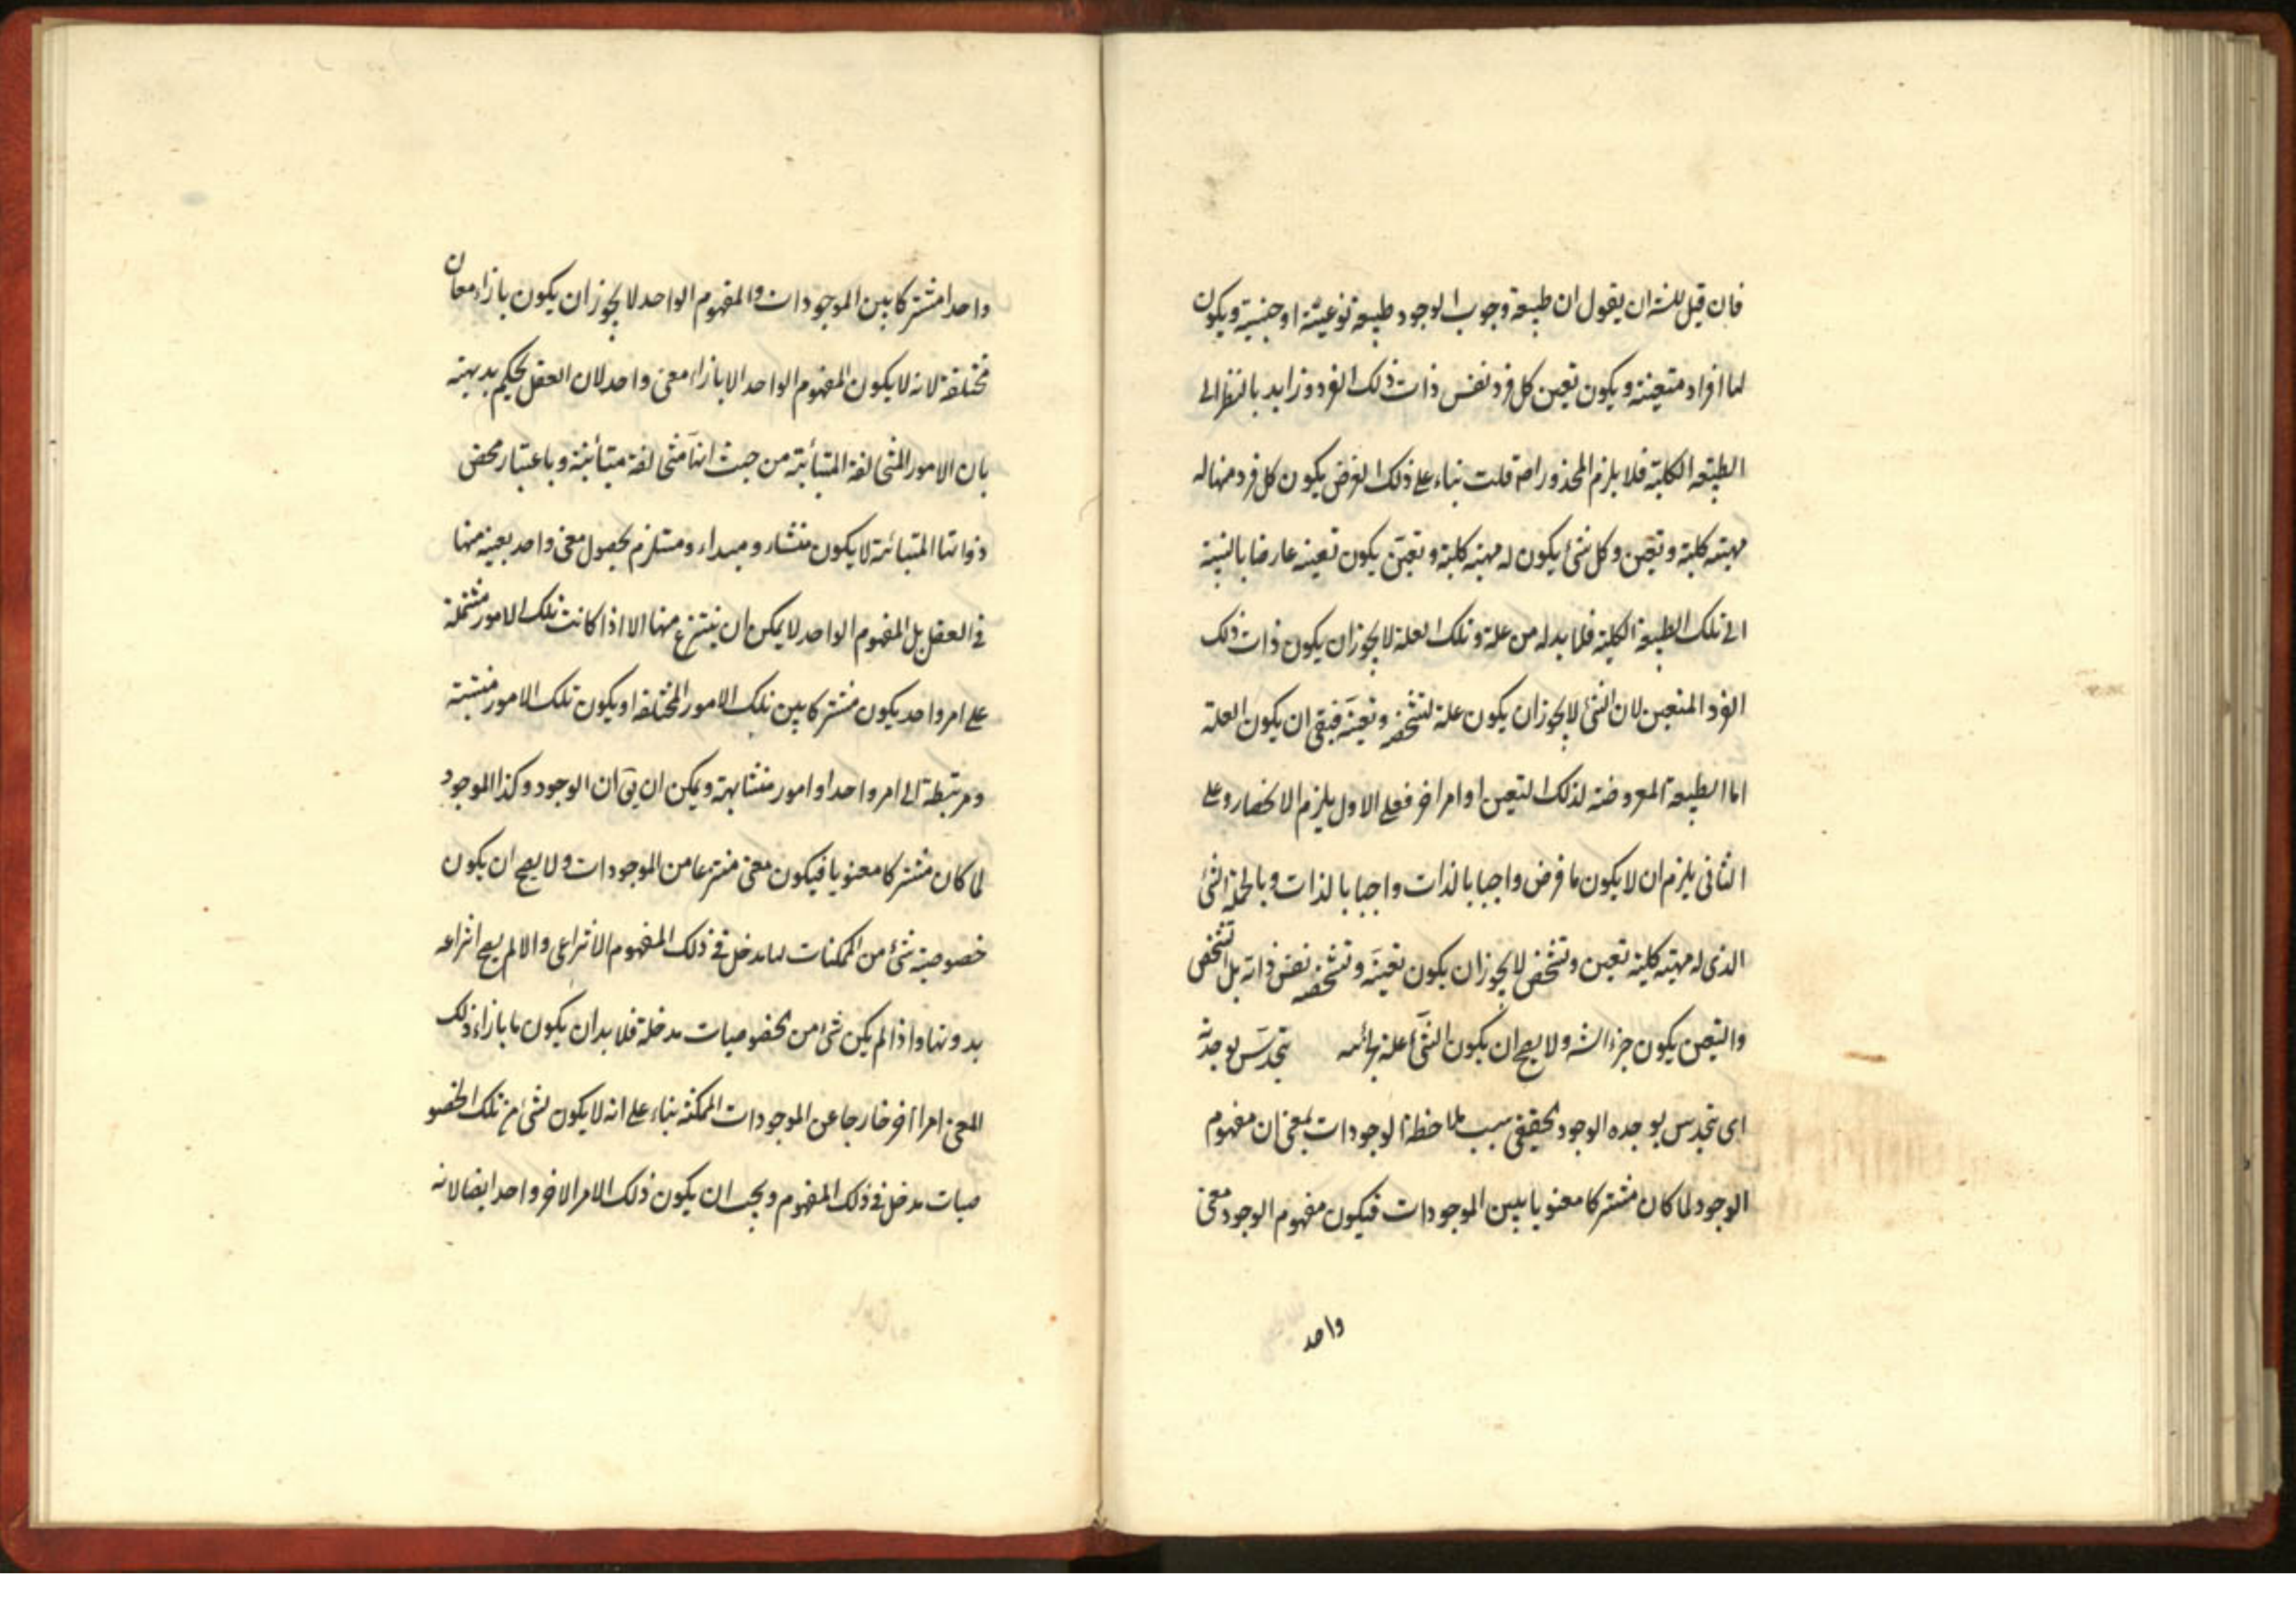 فان قيل ان يقول ان طبيعة وجوب الوجود طبيعة نوعية او جنسية ويكون
لها افراد متعينة ويكون تعين كل فرد نفس ذات ذلك الفرد وزايد بالنظر الى
الطبيعة الكلية فلا يلزم المحذور اصلا قلت بناء على ذلك الفرض يكون كل فرد منها له
مهية كلية وتعين وكل شئ يكون له مهية كلية وتعين يكون تعينه عارضا بالنسبة
الى تلك الطبيعة الكلية فلا بد له من علة وتلك العلة لا يجوز ان يكون ذات ذلك
الفرد المتعين لان الشئ لا يجوز ان يكون علة لتشخصه وتعينه فبقى ان يكون العلة
اما الطبيعة المعروضة لذلك التعين او امر اخر فعلى الاول يلزم الانحصار وعلى
الثانى يلزم ان لا يكون ما فرض واجبا بالذات واجبا بالذات وبالجملة الشئ
الذى له مهية كلية تعين وتشخص لا يجوز ان يكون تعينه وتشخصه نفس ذاته بل التشخص
والتعين يكون جزء الشئ ولا يصح ان يكون الشئ علة لجزئه يتحدس بوحدته
اى يتحدس بوحدة الوجود الحقيقى بسبب ملاحظة الوجودات بمعنى ان مفهوم
الوجود لما كان مشتركا معنويا بين الموجودات فيكون مفهوم الوجود معنى
واحد
واحدا مشتركا بين الموجودات والمفهوم الواحد لا يجوز ان يكون بازاء معان
مختلفة لانه لا يكون المفهوم الواحد الا بازاء معنى واحد لان العقل يحكم بديهة
بان الامور المتخالفة المتبائنة من حيث انها متخالفة متبائنة وباعتبار محض
ذواتها المتبائنة لا يكون منشاء ومبداء ومستلزم لحصول معنى واحد بعينه منها
فى العقل بل المفهوم الواحد لا يمكن ان ينتزع منها الا اذا كانت تلك الامور مشتملة
على امر واحد يكون مشتركا بين تلك الامور المختلفة او يكون تلك الامور منتسبة
ومرتبطة الى امر واحد او امور متشابهة ويمكن ان يق ان الوجود وكذا الموجود
لما كان مشتركا معنويا فيكون معنى منتزعا من الموجودات ولا يصح ان يكون
خصوصية شئ من الممكنات لها مدخل فى ذلك المفهوم الانتزاعى والا لم يصح انتزاعه
بدونها واذا لم يكن شئ من الخصوصيات مدخلة فلا بد ان يكون ما بازاء ذلك
المعنى امرا آخر خارجا عن الموجودات الممكنة بناء على انه لا يكون لشئ من تلك الخصو
صيات مدخل فى ذلك المفهوم ويجب ان يكون ذلك الامر الاخر واحد ايضا لانه